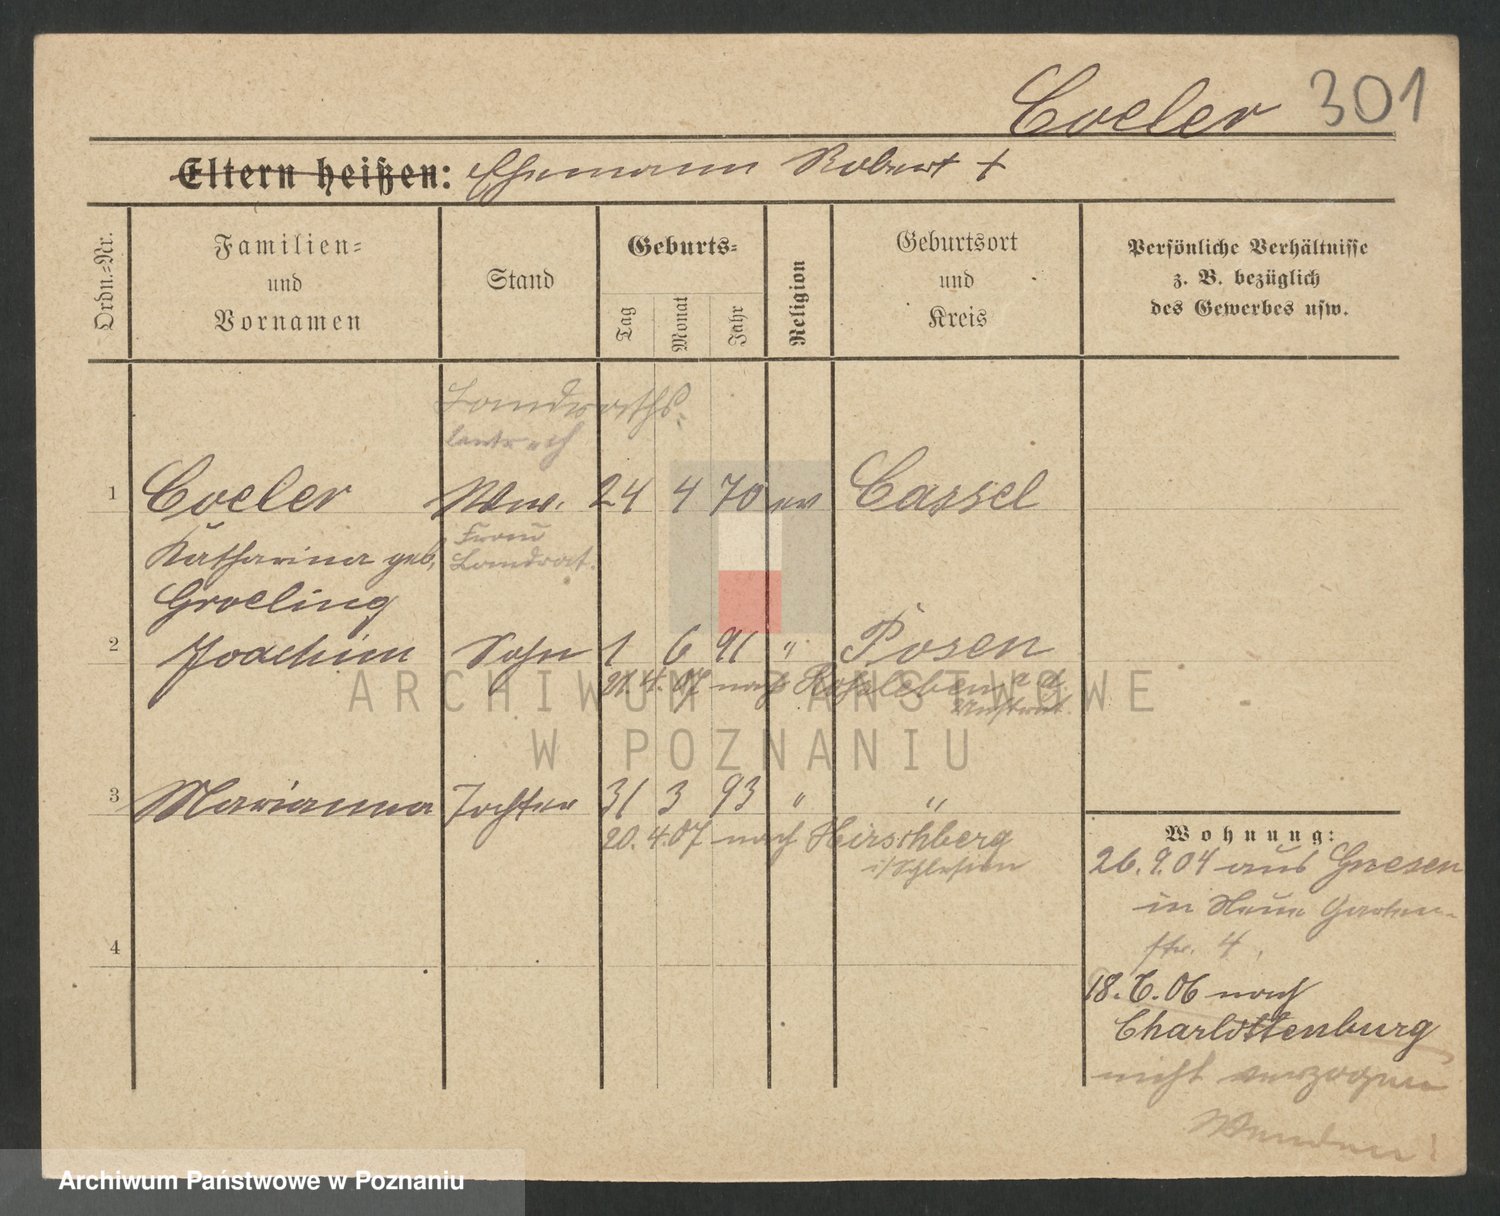 Coeler 301
Eltern heißen: Ehemann Robert +
Ordn.=Nr.
Familien=
und
Vornamen
Stand
Geburts=
Tag
Monat
Jahr
Religion
Geburtsort
und
Kreis
Persönliche Verhältnisse
z. B. bezüglich
des Gewerbes usw.
Landraths
1 Coeler Ww. 24 4 70 ev Cassel
Frau
Katharina geb.
Landrat.
Groeling
2 Joachim Sohn 1 6 91 " Posen
21. 4. 07 nach Rossleben a d
Unstrut
ARCHIWUM PAŃSTWOWE
W POZNANIU
3 Marianna Tochter 31 3 93 " "
20. 4. 07 nach Hirschberg
i/Schlesien
4
Wohnung:
26. 9. 04 aus Gnesen
in Neue Garten-
str. 4.
18. 6. 06 nach
Charlottenburg
nicht verzogen
Wenden!
Archiwum Państwowe w Poznaniu